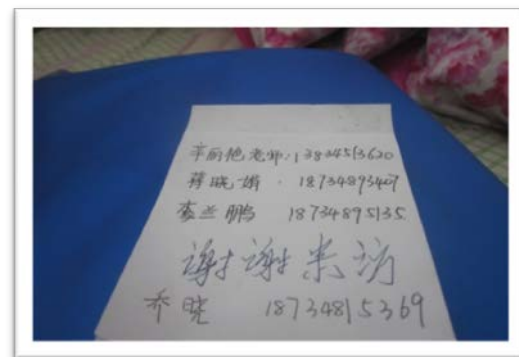 辛丽艳老师:13834513620
蒋晓娟:18734893407
李兰鹏 18734895135
谢谢来访
乔晓 18734815369